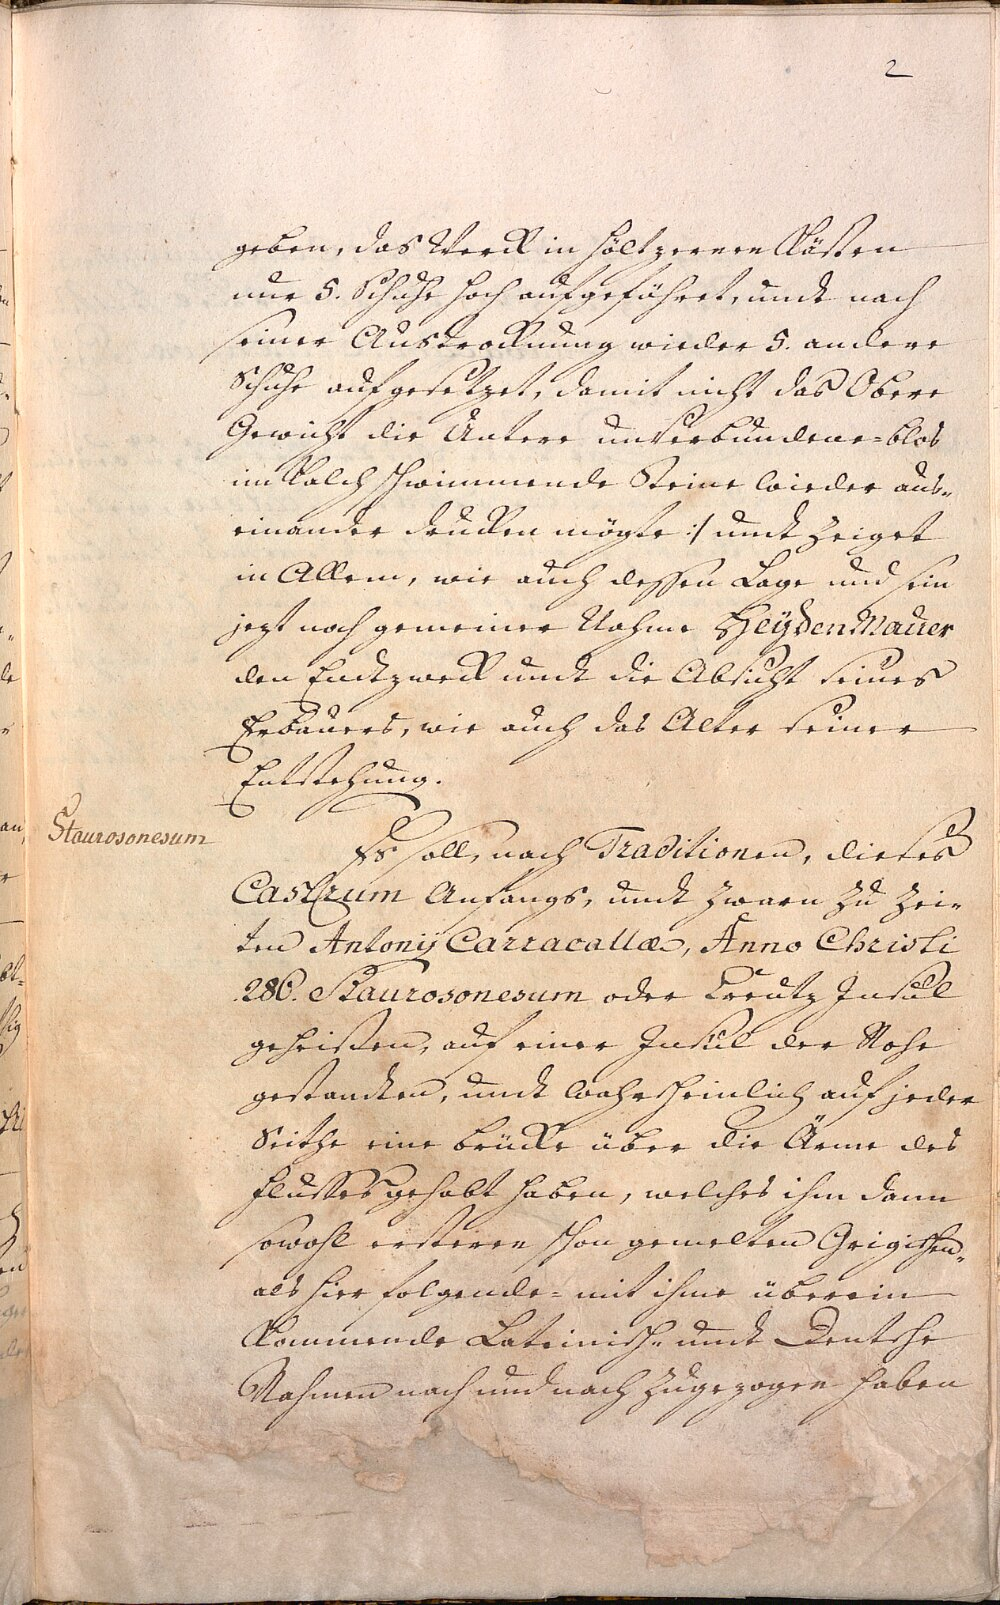 2
geben, das Werck in höltzernen Kästen
nur 5. Schuhe hoch aufgeführet, undt nach
seiner Austrocknung wieder 5. andere
Schuhe aufgesetzet, damit nicht das Obere
Gewicht die Untere unverbundene-blos
im Kalch schwimmende Steine wieder aus-
einander drucken mögte :/ undt zeiget
in Allem, wie auch dessen Lage und sein
jezt noch gemeiner Nahme HeÿdenMauer
den Endtzweck undt die Absicht seines
Erbauers, wie auch das Alter seiner
Entstehung.
Staurosonesum
Es soll, nach Traditionen, dieses
Castrum Anfangs, undt zwarn zu Zei-
ten Antonij Carracallæ, Anno Christi
286. Staurosonesum oder Creutz Insul
geheißen, auf einer Insul der Nohe
gestandten, undt wahrscheinlich auf jeder
Seithe eine Brücke über die Ärme des
Flusses gehabt haben, welches ihm dann
sowohl ersteren schon gemelten Grigischen-
als hier folgende- mit ihme überein
Kommende Lateinisch- undt Deutsche
Nahmen nach und nach zugezogen haben